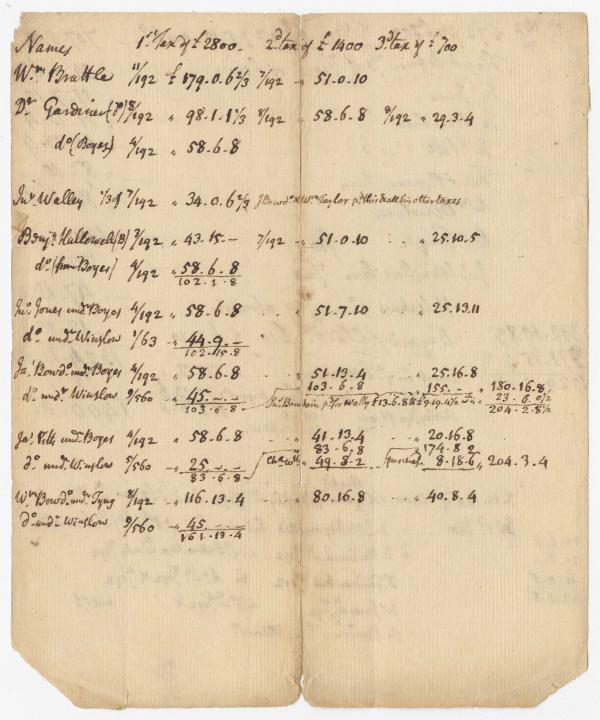 Names 1st Tax of £ 2800. 2d tax of £ 1400 3d tax of £ 700
Wm Brattle 11/192 £ 179.0.6 2/3 7/192 " 51.0.10
Dr Gardiner 8/192 " 98.1.1 1/3 8/192 " 58.6.8 8/192 " 29.3.4
do (Boyes) 4/192 " 58.6.8
Jno Walley 1/3 of 7/192 " 34.0.6 2/3 J Bowdn & Wm Taylor pd this & all his other taxes
Benjn Hallowell (B) 3/192 " 43.15.– 7/192 " 51.0.10 " 25.10.5
do (from Boyes) 4/192 " 58.6.8
102.1.8
Jno Jones undr Boyes 4/192 " 58.6.8 " 51.7.10 " 25.13.11
do undr Winslow 1/63 " 44.9.–
102.15.8
Jas Bowdn undr Boyes 4/192 " 58.6.8 " 51.13.4 " 25.16.8
103.6.8 155.–.– " 180.16.8
do undr Winslow 9/560 " 45.–.– Jas Bowdoin pd for Wally £13.6.8 & £9.19.4 1/2 " 23.6.0 1/2
103.6.8 204.2.8 1/2
Jas Pitts undr Boyes 4/192 " 58.6.8 " 41.13.4 " 20.16.8
83.6.8 174.8.2
do undr Winslow 5/560 " 25.–.– 49.8.2 purchas 8.18.6 " 204.3.4
83.6.8
Wm Bowdn undr Tyng 8/192 " 116.13.4 " 80.16.8 " 40.8.4
do undr Winslow 9/560 " 45.–.–
161.13.4